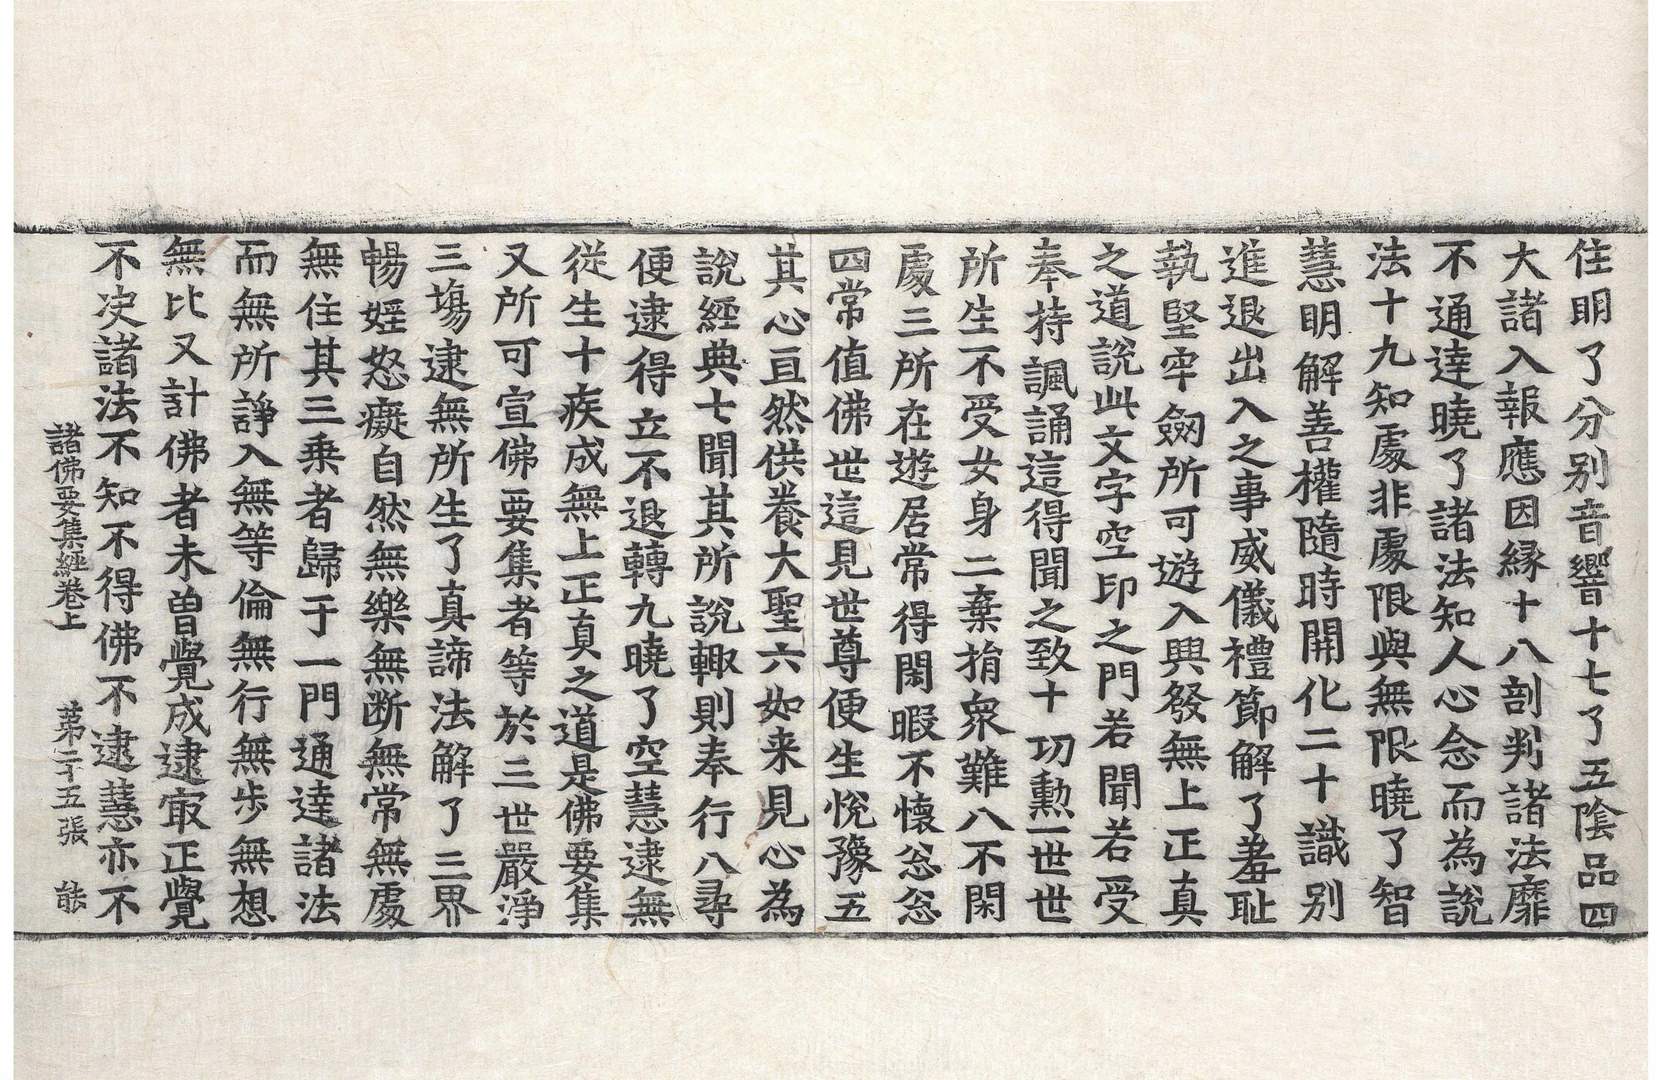 住明了分别音響十七了五陰品四
大諸入報應因縁十八剖判諸法靡
不通達曉了諸法知人心念而為說
法十九知處非處限與無限曉了智
慧明解善權隨時開化二十識别
進退出入之事威儀禮節解了羞耻
執堅牢劒所可遊入興發無上正真
之道說此文字空印之門若聞若受
奉持諷誦這得聞之致十功勳一世世
所生不受女身二棄捐衆難八不閑
處三所在遊居常得閑暇不懷忩忩
四常值佛世這見世尊便生悅豫五
其心亘然供養大聖六如来見心為
說經典七聞其所說輙則奉行八尋
便逮得立不退轉九曉了空慧逮無
從生十疾成無上正真之道是佛要集
又所可宣佛要集者等於三世嚴淨
三塲逮無所生了真諦法解了三界
暢婬怒癡自然無樂無断無常無處
無住其三乗者歸于一門通達諸法
而無所諍入無等倫無行無步無想
無比又計佛者未曽覺成逮㝡正覺
不决諸法不知不得佛不逮慧亦不
諸佛要集經卷上 第二十五張 能